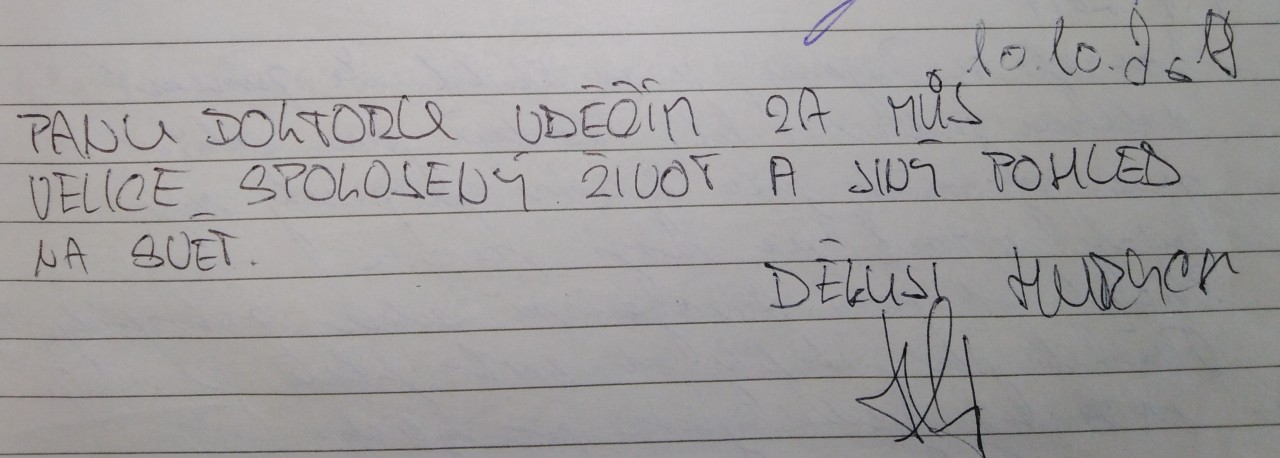 PANU DOKTORU VDĚČÍM ZA MŮJ
VELICE SPOKOJENÝ ŽIVOT A JINÝ POHLED
NA SVĚT.
DĚKUJI